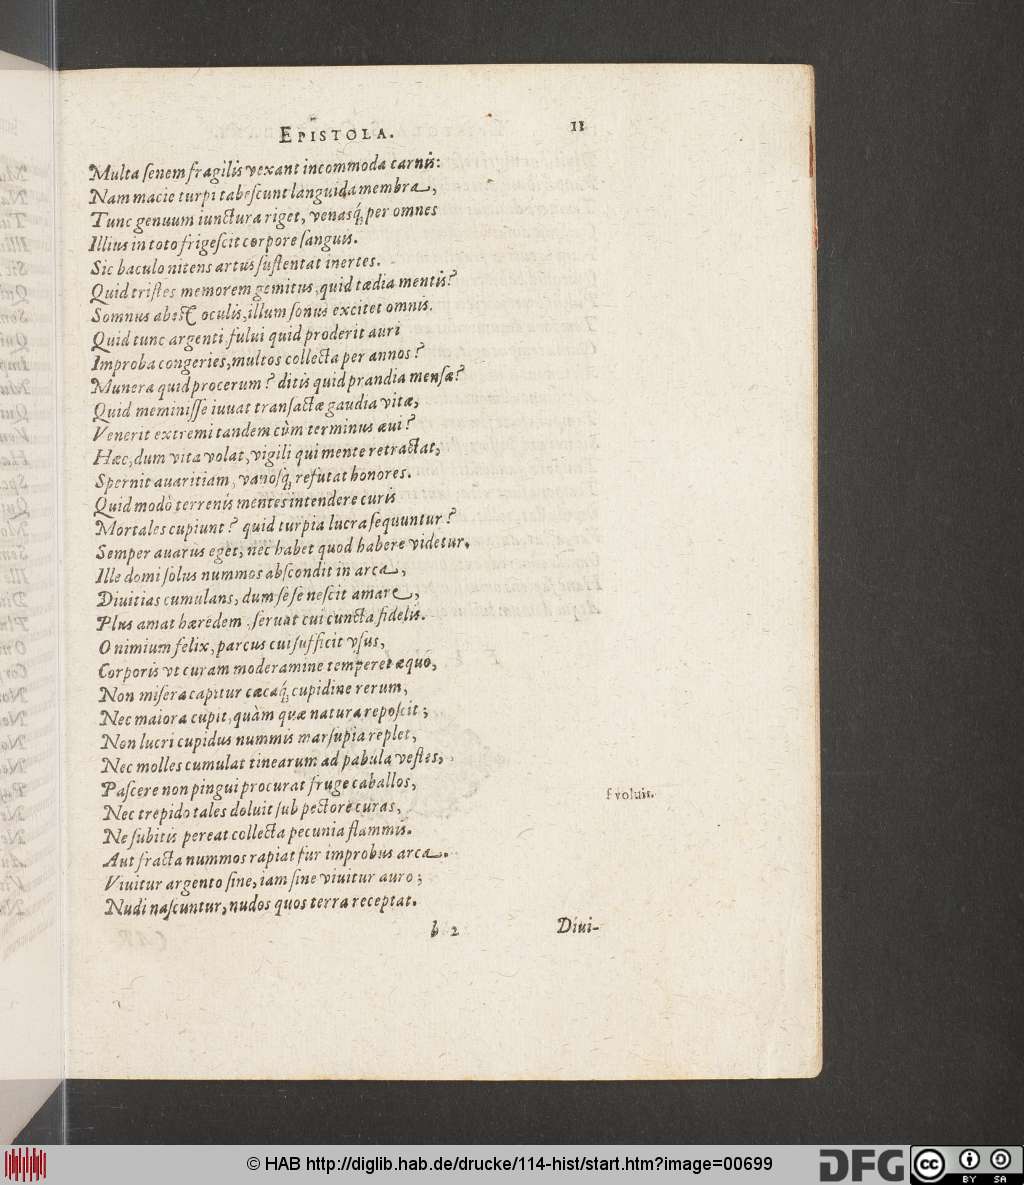 EPISTOLA. 11
Multa ſenem fragilis vexant incommoda carnis:
Nam macie turpi tabeſcunt languida membra,
Tunc genuum iunctura riget, venasq́; per omnes
Illius in toto frigeſcit corpore ſanguis.
Sic baculo nitens artus ſuſtentat inertes.
Quid triſtes memorem gemitus, quid tædia mentis?
Somnus abeſt oculis, illum ſonus excitet omnis.
Quid tunc argenti fului quid proderit auri
Improba congeries, multos collecta per annos?
Munera quid procerum? ditis quid prandia menſæ?
Quid meminiſſe iuuat tranſactæ gaudia vitæ,
Venerit extremi tandem cùm terminus æui?
Hæc, dum vita volat, vigili qui mente retractat,
Spernit auaritiam, vanosq́; refutat honores.
Quid modò terrenis mentes intendere curis
Mortales cupiunt? quid turpia lucra ſequuntur?
Semper auarus eget, nec habet quod habere videtur.
Ille domi ſolus nummos abſcondit in arca,
Diuitias cumulans, dum ſeſe neſcit amare,
Plus amat hæredem, ſeruat cui cuncta fidelis.
O nimium felix, parcus cui ſufficit vſus,
Corporis vt curam moderamine temperet æquo,
Non miſera capitur cæcaq́; cupidine rerum,
Nec maiora cupit, quàm quæ natura repoſcit;
Non lucri cupidus nummis marſupia replet,
Nec molles cumulat tinearum ad pabula veſtes,
Paſcere non pingui procurat fruge caballos,
Nec trepido tales doluit ſub pectore curas,
Ne ſubitis pereat collecta pecunia flammis.
Aut fracta nummos rapiat fur improbus arca.
Viuitur argento ſine, iam ſine viuitur auro;
Nudi naſcuntur, nudos quos terra receptat.
f voluit.
b 2 Diui-
© HAB http://diglib.hab.de/drucke/114-hist/start.htm?image=00699
DFG
cc BY SA